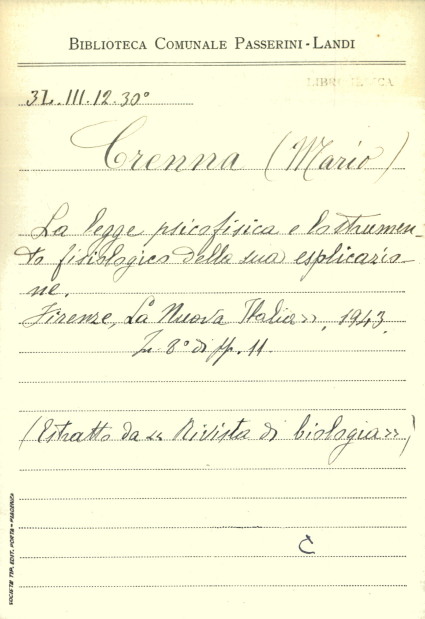 BIBLIOTECA COMUNALE PASSERINI-LANDI
3L.III.12.30°
Crenna (Mario)
La legge psicofisica e lo strumen-
to fisiologico della sua esplicazio-
ne.
Firenze, La Nuova Italia››, 1943.
In 8° di pp. 11.
(Estratto da ‹‹ Rivista di biologia››)
C
SOCIETÀ TIP. EDIT. PORTA - PIACENZA